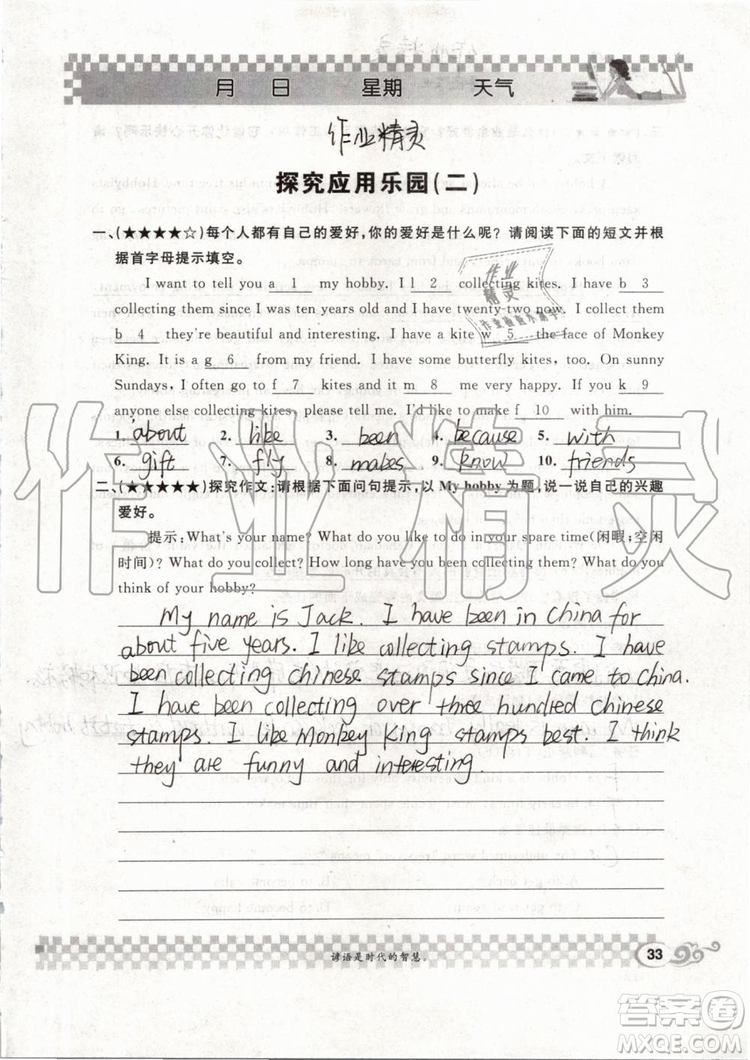 月 日 星期 天气
作业精灵
探究应用乐园(二)
一、(★★★★☆)每个人都有自己的爱好,你的爱好是什么呢?请阅读下面的短文并根
据首字母提示填空。
作业
精灵
I want to tell you a 1 my hobby. I l 2 collecting kites. I have b 3
collecting them since I was ten years old and I have twenty-two now. I collect them
b 4 they're beautiful and interesting. I have a kite w 5 the face of Monkey
King. It is a g 6 from my friend. I have some butterfly kites, too. On sunny
Sundays, I often go to f 7 kites and it m 8 me very happy. If you k 9
anyone else collecting kites, please tell me. I'd like to make f 10 with him.
1. about 2. like 3. been 4. because 5. with
6. gift 7. fly 8. makes 9. know 10. friends
二、(★★★★★)探究作文:请根据下面问句提示,以 My hobby 为题,说一说自己的兴趣
爱好。
提示: What's your name? What do you like to do in your spare time(闲暇;空闲
时间)? What do you collect? How long have you been collecting them? What do you
think of your hobby?
My name is Jack. I have been in China for
about five years. I like collecting stamps. I have
been collecting chinese stamps since I came to China.
I have been collecting over three hundred Chinese
stamps. I like Monkey King stamps best. I think
they are funny and interesting.
谚语是时代的智慧。
33
作业精灵
答案圈
MXQE.COM